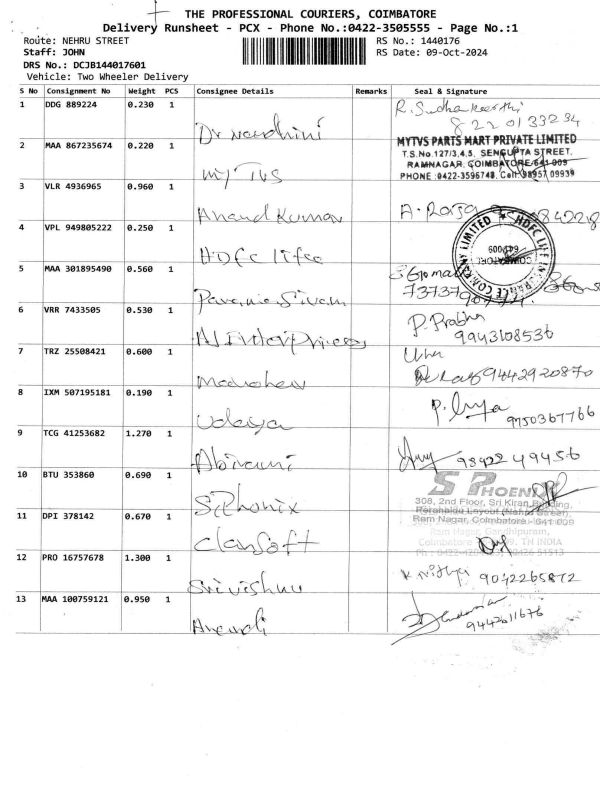 THE PROFESSIONAL COURIERS, COIMBATORE
Delivery Runsheet - PCX - Phone No.:0422-3505555 - Page No.:1
Route: NEHRU STREET RS No.: 1440176
Staff: JOHN RS Date: 09-Oct-2024
DRS No.: DCJB144017601
Vehicle: Two Wheeler Delivery
S No Consignment No Weight PCS Consignee Details Remarks Seal & Signature
1 DDG 889224 0.230 1 Dr nandhini R. Sudhakeerthi
8220133234
2 MAA 867235674 0.220 1 my TVS MYTVS PARTS MART PRIVATE LIMITED
T.S.No.127/3,4,5, SENGUPTA STREET,
RAMNAGAR, COIMBATORE-641 009
PHONE :0422-3596748. Cell:98957 09939
3 VLR 4936965 0.960 1 Anand Kumar A. Raja
4 VPL 949805222 0.250 1 HDFC life HDFC LIFE INSURANCE COMPANY LIMITED
COIMBATORE
641009
5 MAA 301895490 0.560 1
6 VRR 7433505 0.530 1 P. Prabha
9943108536
7 TRZ 25508421 0.600 1 Manohar Uma
9442920870
8 IXM 507195181 0.190 1 Udaya P.
9750367766
9 TCG 41253682 1.270 1 Abirami 98422 49456
10 BTU 353860 0.690 1 S Phonix S PHOENIX
308, 2nd Floor, Sri Kiran Building,
Perahaidu Layout (Nehru Street),
Ram Nagar, Coimbatore - 641 009
11 DPI 378142 0.670 1 ClanSoft Ram Nagar, Gandhipuram,
12 PRO 16757678 1.300 1 Srivishnu K. Nithya 9042265872
13 MAA 100759121 0.950 1 9442011676